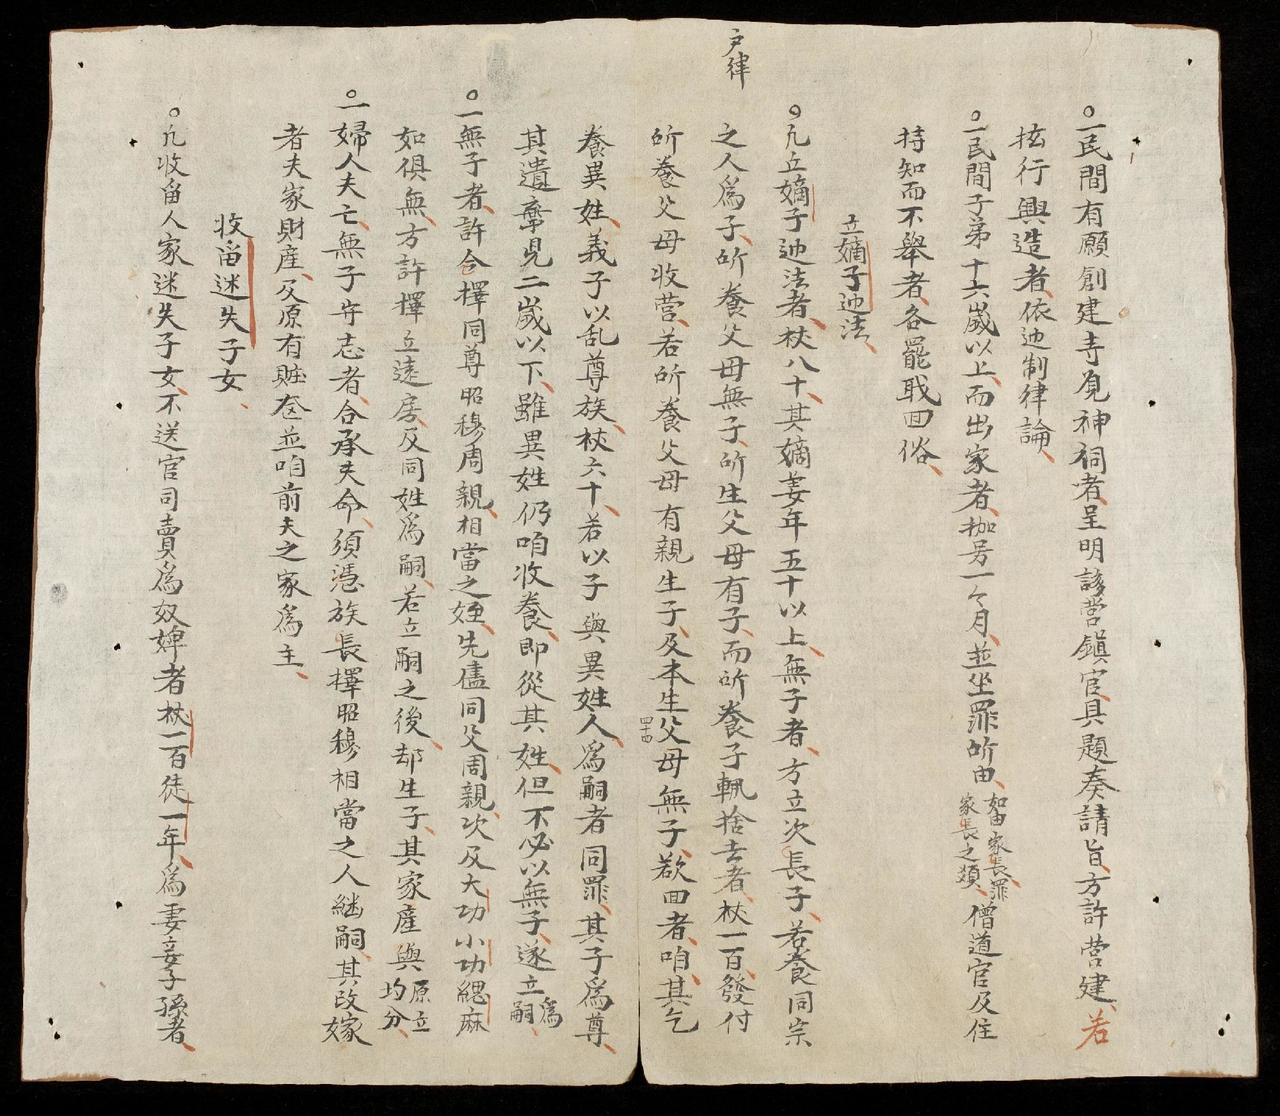 戶律
○一民間有願創建寺覓神祠者呈明該营鎮官具題奏請旨方許营建若
㧋行興造者依迆制律論
○一民間子弟十六歲以上而出家者枷号一个月並坐罪所由如由家長罪家長之類僧道官及住
持知而不舉者各罷戢回俗
立嫡子迆法
○凢立嫡子迆法者杖八十其嫡妻年五十以上無子者方立次長子若養同宗
之人爲子所養父母無子所生父母有子而所養子輒捨去者杖一百發付
所養父母收营若所養父母有親生子及本生父母無子欲回者咱其乞
養異姓義子以乱尊族杖六十若以子與異姓人爲嗣者同罪其子爲尊
其遺棄児二歲以下雖異姓仍咱收養即從其姓但不必以無子遂立爲嗣
○一無子者許合擇同尊昭穆周親相當之姪先儘同父周親次及大功小功緦麻
如俱無方許擇立遠房及同姓爲嗣若立嗣之後却生子其家產與原立均分
○一婦人夫亡無子守志者合承夫命須憑族長擇昭穆相當之人継嗣其改嫁
者夫家財產及原有賍奩並咱前夫之家爲主
收畄迷失子女
○凢收畄人家迷失子女不送官司賣爲奴婢者杖一百徒一年爲妻妾子孫者